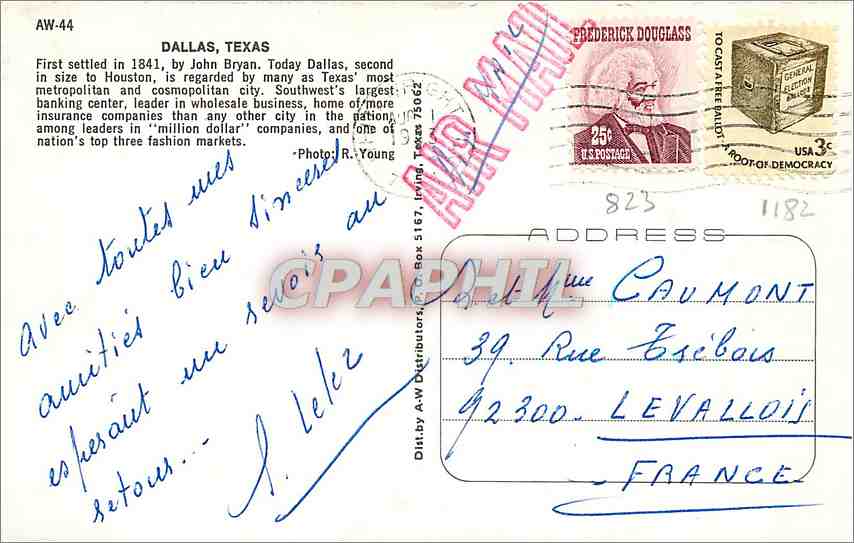 AW-44
DALLAS, TEXAS
First settled in 1841, by John Bryan. Today Dallas, second
in size to Houston, is regarded by many as Texas' most
metropolitan and cosmopolitan city. Southwest's largest
banking center, leader in wholesale business, home of more
insurance companies than any other city in the nation,
among leaders in "million dollar" companies, and one of
nation's top three fashion markets.
-Photo: R. Young
avec toutes mes
amitiés bien sincères
espérant un revoir au
retour...
Dist. by A-W Distributors, P. O. Box 5167, Irving, Texas 75062
AUG
AIR MAIL
FREDERICK DOUGLASS
25¢
U.S. POSTAGE
TO CAST A FREE BALLOT-A ROOT OF DEMOCRACY
GENERAL
ELECTION
BALLOTS
USA 3c
823
1182
ADDRESS
et Mme CAUMONT
39. Rue Trébois
92300. LEVALLOIS
FRANCE
CPAPHIL